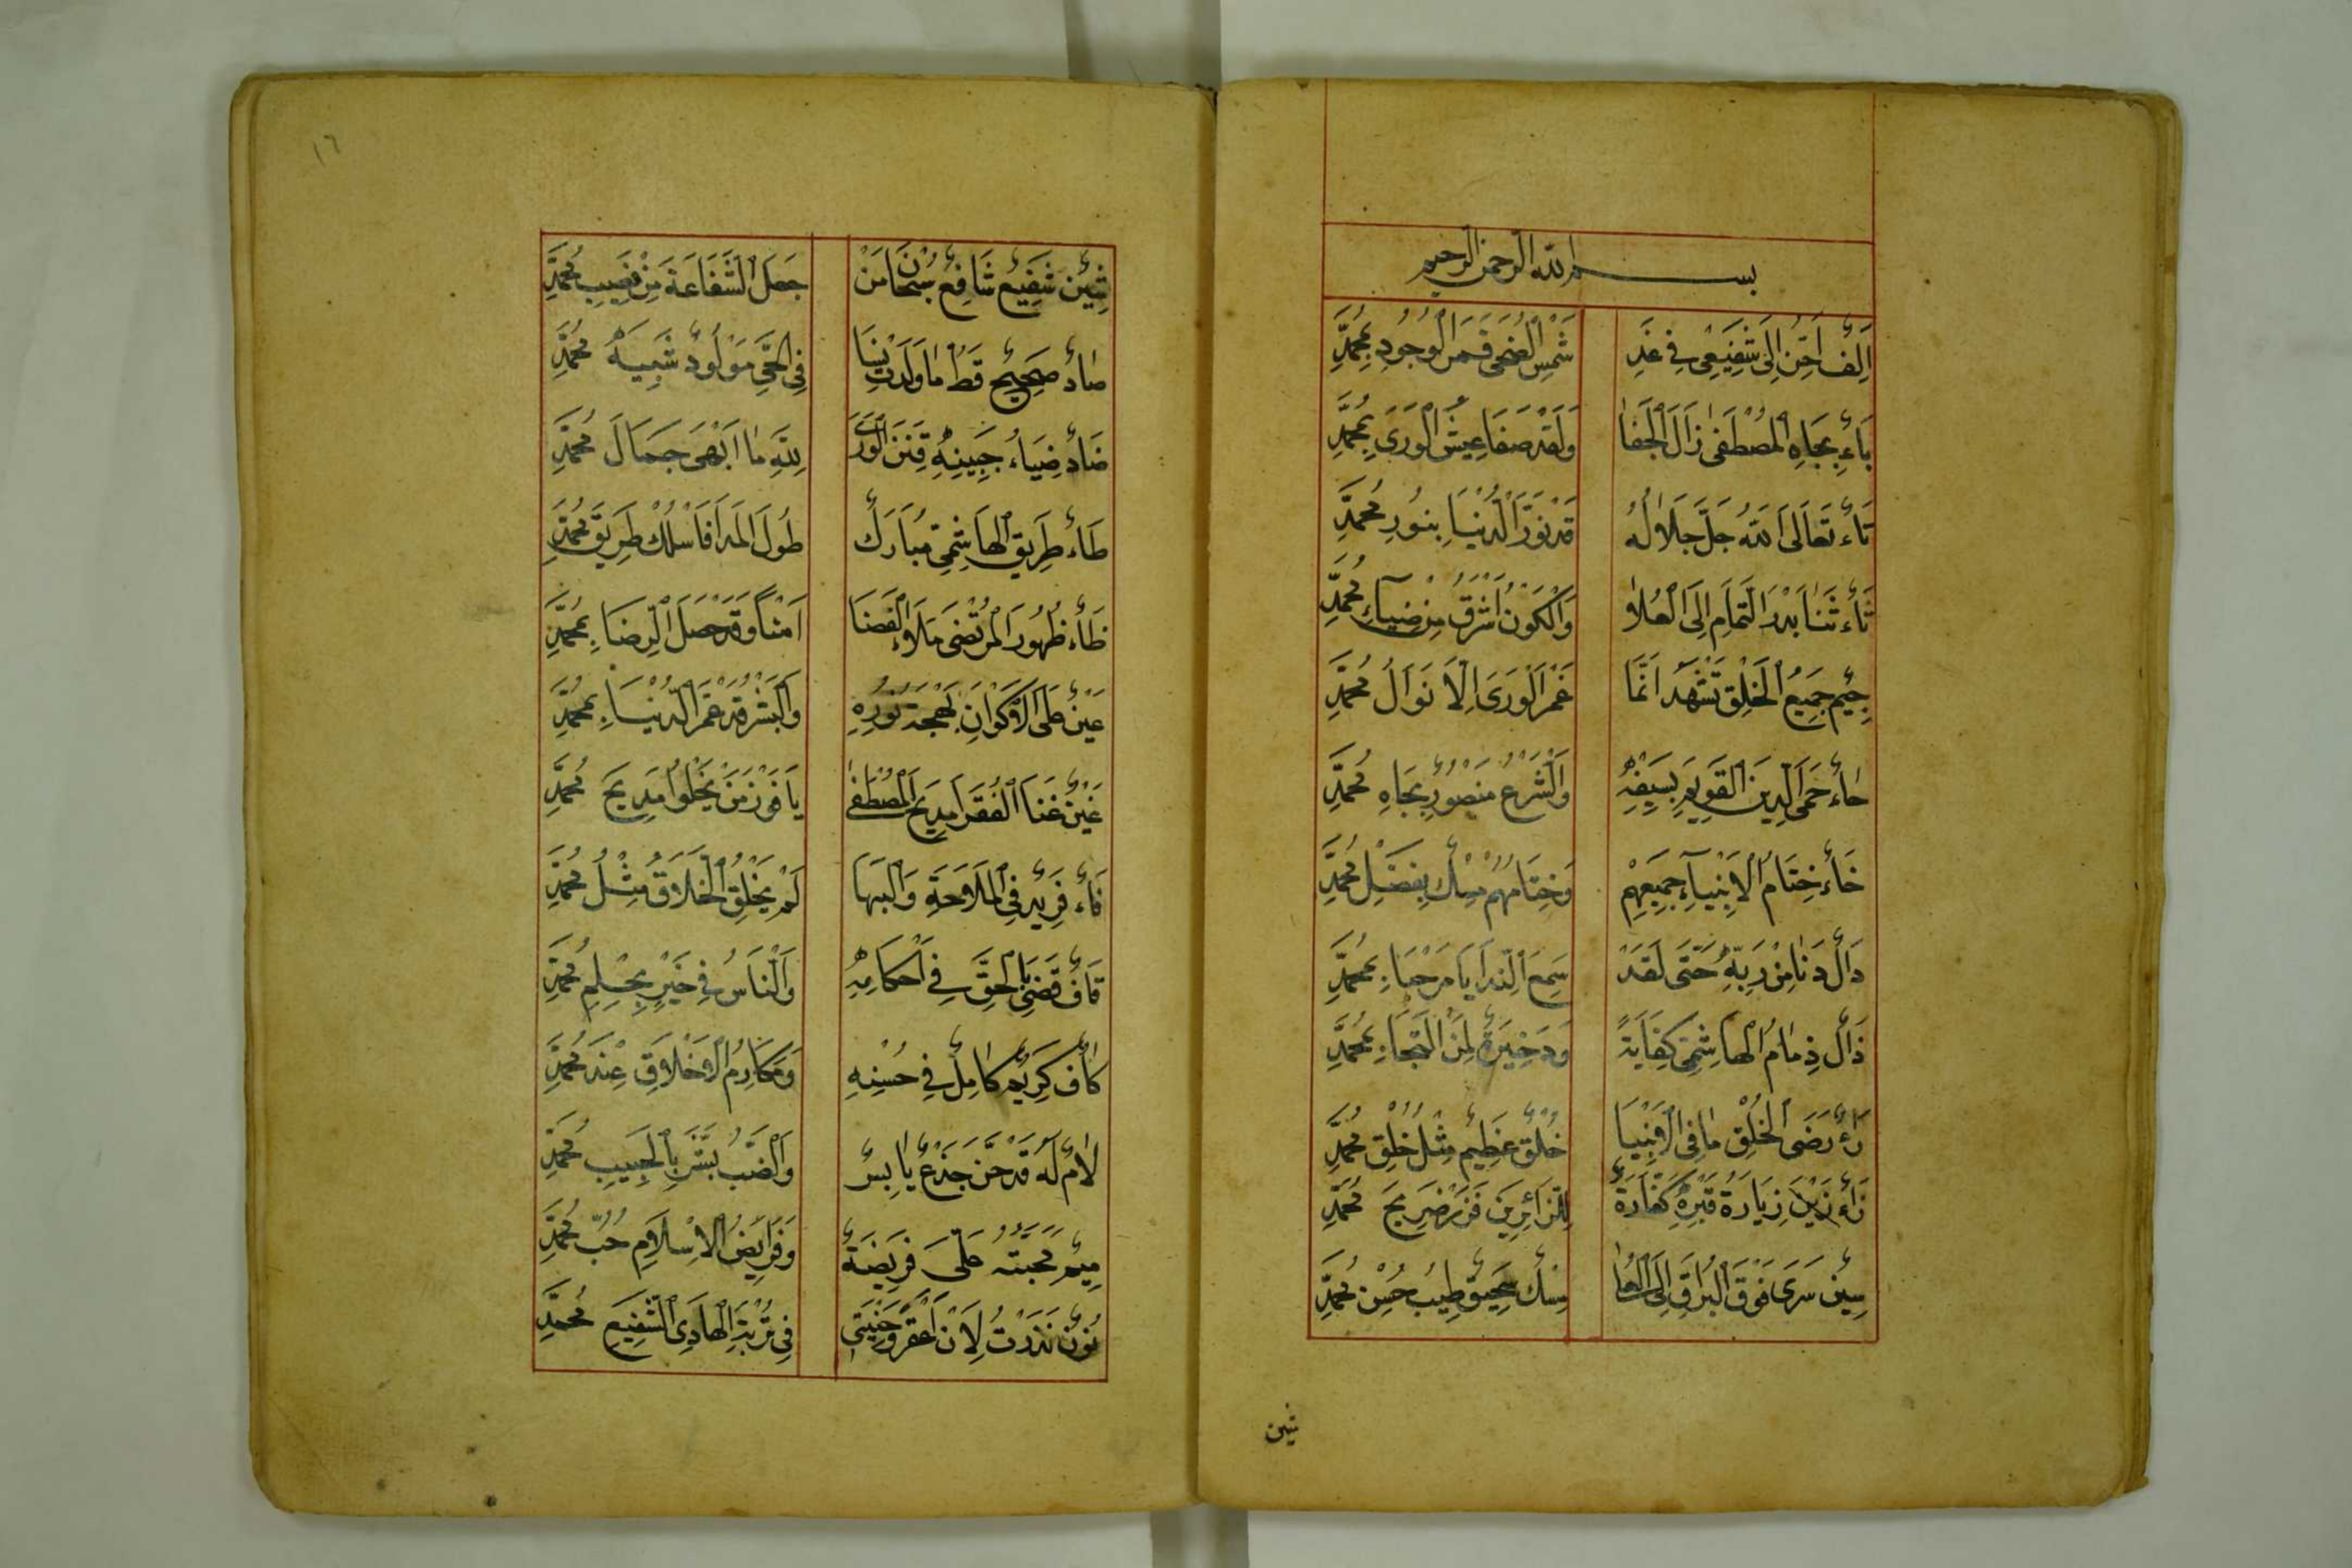 بسم الله الرحمن الرحيم
اَلِفٌ اَحِنُّ اِلَى شَفِيْعِى فِى غَدِ شَمْسِ الضُحَى قَمَرِ الْوُجُودِ مُحَمَّدِ
بَاءٌ بِجَاهِ الْمُصْطَفٰى زَالَ الْجَفَا وَلَقَدْ صَفَا عَيْشُ الْوَرَى بِمُحَمَّدِ
تَاءٌ تَعَالَى اللهُ جَلَّ جَلَالُهُ قَدْ نَوَّرَ الْدُنْيَا بِنُورِ مُحَمَّدِ
ثَاءٌ ثَنَا بَدْرَ الْتَمَامِ اِلَى الْعُلَا وَالْكَوْنُ اَشْرَقَ مِنْ ضِيَآءِ مُحَمَّدِ
جِيْمٌ جَمِيْعُ الْخَلْقِ تَشْهَدُ اَنَّمَا غَمَرَ الْوَرَى اِلَّا نَوَالُ مُحَمَّدِ
حَاءٌ حَمَى الدِيْنَ الْقَوِيْمَ بِسَيْفِهِ وَالْشَرْعُ مَنْصُورٌ بِجَاهِ مُحَمَّدِ
خَاءٌ خِتَامُ الْاَنْبِيَآءِ جَمِيْعِهِمْ وَخِتَامُهُمْ مِسْكٌ بِفَضْلِ مُحَمَّدِ
دَالٌ دَنَا مِنْ رَبِّهِ حَتَّى لَقَدْ سَمِعَ الْنِّدَا يَا مَرْحَبًا بِمُحَمَّدِ
ذَالٌ ذِمَامُ الْهَاشِمِىِّ كِفَايَةً وَذَخِيْرَةٌ لِمَنِ الْتَجَا بِمُحَمَّدِ
رَاءٌ رَضَى الْخُلْقِ مَا فِى الْاَنْبِيَا خُلْقٌ عَظِيْمٌ مِثْلُ خُلْقِ مُحَمَّدِ
زَاءٌ زَيْنٌ زِيَارَةُ قَبْرِهِ كَفَّارَةٌ لِلْزَائِرِيْنَ فَزُرْ ضَرِيْحَ مُحَمَّدِ
سِيْنٌ سَرَى فَوْقَ الْبُرَاقِ اِلَى الْعُلَا مِسْكٌ سَحِيْقٌ طِيْبُ حُسْنِ مُحَمَّدِ
شين
١٦
شِيْنٌ شَفِيْعٌ شَافِعٌ سُبْحَانَ مَنْ جَعَلَ الْشَفَاعَةَ مِنْ نَصِيْبِ مُحَمَّدِ
صَادٌ صَحِيْحٌ قَطُّ مَا وَلَدَتْ نِسَا فِى الْحَىِّ مَوْلُودٌ شَبِيْهُ مُحَمَّدِ
ضَادٌ ضِيَاءُ جَبِيْنِهِ فَتَنَ الْوَرَى لِلّٰهِ مَا اَبْهَى جَمَالَ مُحَمَّدِ
طَاءٌ طَرِيْقُ الْهَاشِمِى مُبَارَكٌ طُولَ الْمَدَا فَاسْلُكْ طَرِيْقَ مُحَمَّدِ
ظَاءٌ ظُهُورُ الْمُرْتَضَى مَلَاءَ الْفَضَا اَمْنًا وَقَدْ حَصَلَ الْرِّضَا بِمُحَمَّدِ
عَيْنٌ عَلَى الْاَكْوَانِ بَهْجَةُ نُورِهِ وَالْبَشْرُ قَدْ عَمَّ الْدُنْيَا بِمُحَمَّدِ
غَيْنٌ غَنَا الْفُقَرَا مَدِيْحُ الْمُصْطَفٰى يَا فَوْزَ مَنْ يَحْلُو مَدِيْحَ مُحَمَّدِ
فَاءٌ فَرِيْدٌ فِى الْمَلَاحَةِ وَالْبَهَا لَمْ يَخْلُقِ الْخَلَّاقُ مِثْلُ مُحَمَّدِ
قَافٌ قَضَى بِالْحَقِّ فِى اَحْكَامِهِ وَالْنَاسُ فِى خَيْرٍ بِحِلْمِ مُحَمَّدِ
كَافٌ كَرِيْمٌ كَامِلٌ فِى حُسْنِهِ وَمَكَارِمُ الْاَخْلَاقِ عِنْدَ مُحَمَّدِ
لَامٌ لَهُ قَدْ حَنَّ جَذْعٌ يَابِسٌ وَالْضَبُّ بَشَّرَ بِالْحَبِيْبِ مُحَمَّدِ
مِيْمٌ مُحَبَّتُهُ عَلَىَّ فَرِيْضَةٌ وَفَرَايِضُ الْاِسْلَامِ حُبُّ مُحَمَّدِ
نُونٌ نَذَرْتُ لِاَنْ اُعَفِّرْ وَجْنَتِى فِى تُرْبَةِ الْهَادِى الْشَفِيْعِ مُحَمَّدِ